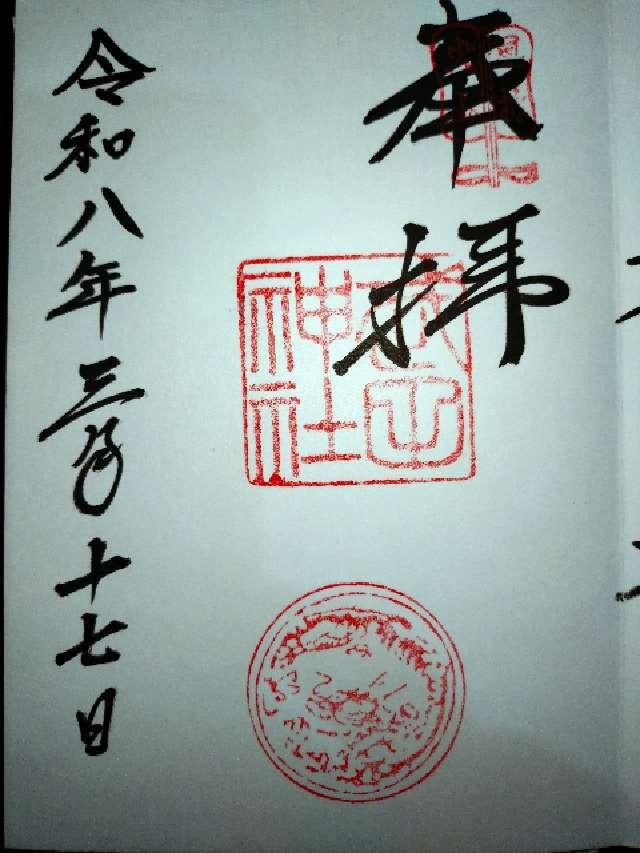 奉拝
神社
令和八年三月十七日